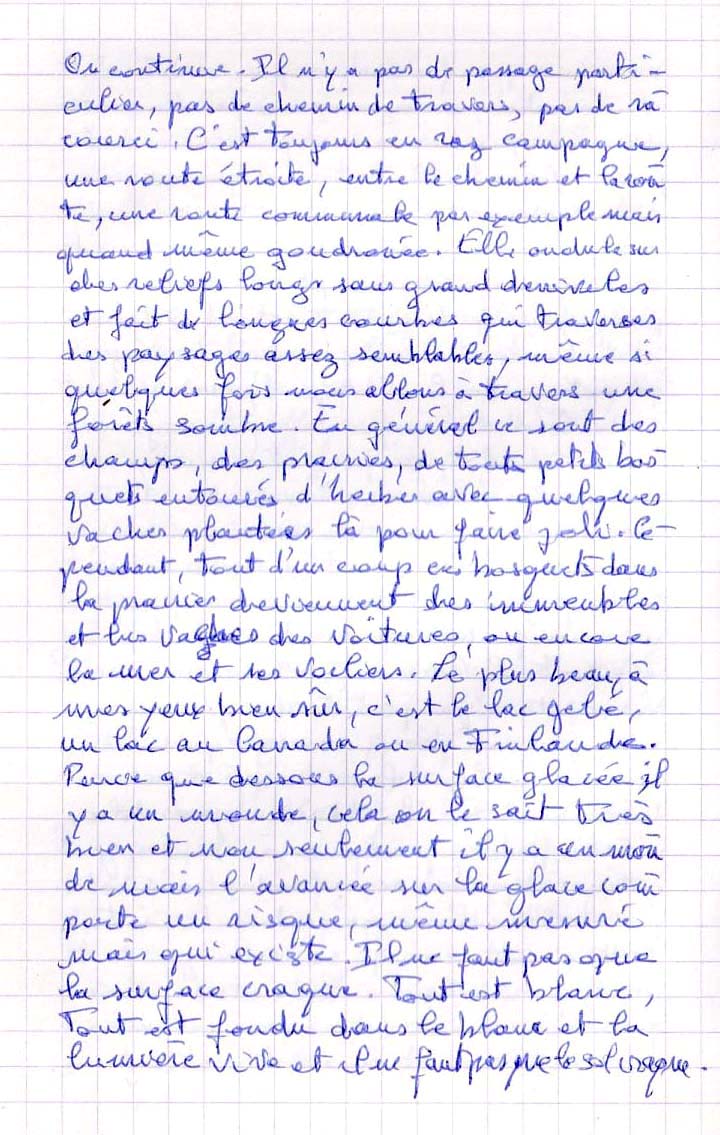 On continue. Il n'y a pas de passage parti-
culier, pas de chemin de travers, pas de ra
courci. C'est toujours en raz campagne,
une route étroite, entre le chemin et la rou
te, une route communale par exemple mais
quand même goudronée. Elle ondule sur
des reliefs longs sans grand dénivelés
et fait de longues courbes qui traverses
des paysages assez semblables, même si
quelques fois nous allons à travers une
forêts sombre. En général ce sont des
champs, des prairies, de touts petits bos
quets entourés d'herbes avec quelques
vaches plantées là pour faire joli. Ce-
pendant, tout d'un coup ces bosquets dans
la prairie deviennent des immeubles
et les vaches des voitures, ou encore
la mer et ses voiliers. Le plus beau, à
mes yeux bien sûr, c'est le lac gelé,
un lac au Canada ou en Finlande.
Parce que dessous la surface glacée il
y a un monde, cela on le sait très
bien et non seulement il y a un mon
de mais l'avancée sur la glace com
porte un risque, même mesuré
mais qui existe. Il ne faut pas que
la surface craque. Tout est blanc,
Tout est fondu dans le blanc et la
lumière vive et il ne faut pas que le sol craque.